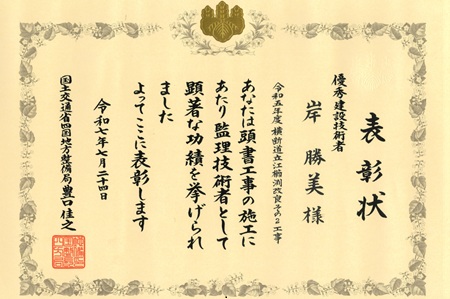 表彰状
優秀建設技術者
岸 勝美 様
令和五年度 横断道立江櫛渕改良その2工事
あなたは頭書工事の施工に
あたり監理技術者として
顕著な功績を挙げられ
ました
よってここに表彰します
令和七年七月二十四日
国土交通省四国地方整備局 豊口佳之